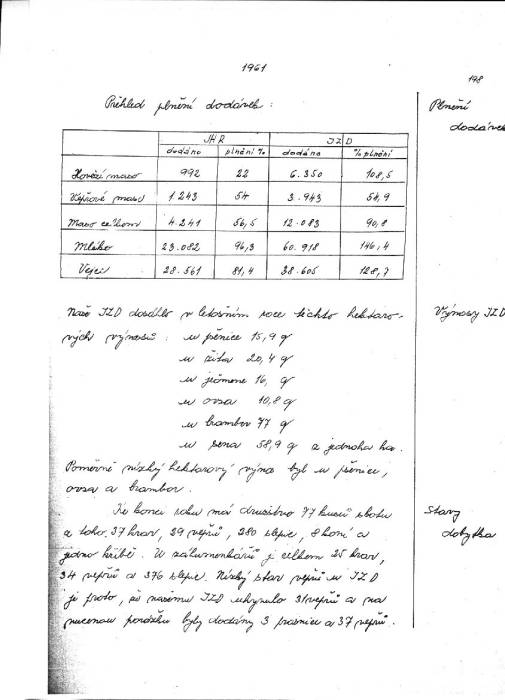 1961
198
Přehled plnění dodávek :
Plnění
dodávek
JHR JZD
dodáno plnění % dodáno % plnění
Hovězí maso 992 22 6.350 108,5
Vepřové maso 1 243 54 3.943 54,9
Maso celkem 4.241 56,5 12.083 90,8
Mléko 23.082 96,3 60.918 146,4
Vejci 28.561 81,4 38.605 128,7
Naše JZD dosáhlo v letošním roce těchto hektaro-
Výnosy JZD
vých výnosů : u pšenice 15,9 q
u žita 20,4 q
u ječmene 16, q
u ovsa 10,8 q
u brambor 77 q
u sena 58,9 q z jednoho ha.
Poměrně nízký hektarový výnos byl u pšenice,
ovsa a brambor.
Ke konci roku má družstvo 77 kusů skotu
Stavy
z toho 37 krav, 29 vepřů, 280 slepic, 8 koní a
dobytka
jedno hříbě. U záhumenkářů je celkem 25 krav,
34 vepřů a 376 slepic. Nízký stav vepřů u JZD
je proto, že našemu JZD uhynulo 31 vepřů a na
nucenou porážku byly dodány 3 prasnice a 37 vepřů.